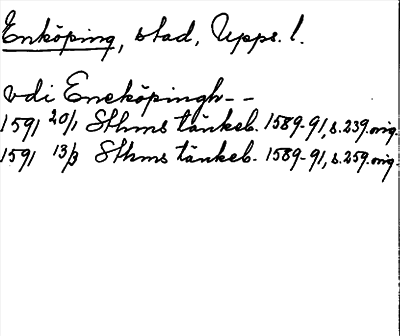 Enköping, stad, Upps. l.
vdi Eneköpingh--
1591 20/1 Sthms tänkeb. 1589-91, s. 239. orig.
1591 13/3 Sthms tänkeb. 1589-91, s. 259. orig.